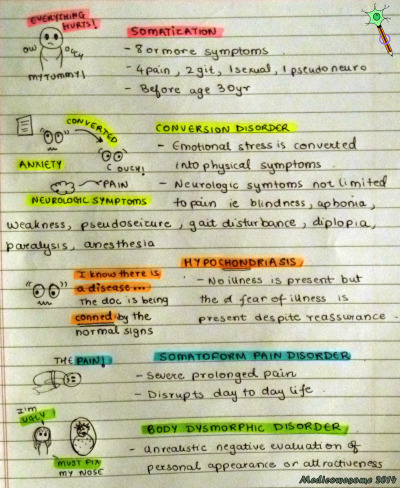 EVERYTHING
HURTS!
OW
OUCH
MY TUMMY!
SOMATICATION
- 8 or more symptoms.
- 4 pain, 2 git, 1 sexual, 1 pseudoneuro
- Before age 30yr
CONVERTED
ANXIETY
OUCH!
PAIN
NEUROLOGIC SYMPTOMS
CONVERSION DISORDER
- Emotional stress is converted
into physical symptoms.
- Neurologic symtoms not limited
to pain ie blindness, aphonia,
weakness, pseudoseicure, gait disturbance, diplopia,
paralysis, anesthesia
HYPOCHONDRIASIS
I know there is
a disease...
The doc is being
conned by the
normal signs
- No illness is present but
the d fear of illness is
present despite reassurance.
THE PAIN!
SOMATOFORM PAIN DISORDER
- Severe prolonged pain
- Disrupts day to day life.
I'm
UGLY!
MUST FIX
MY NOSE
BODY DYSMORPHIC DISORDER
- unrealistic negative evaluation of
personal appearance or attractiveness
Medicowesome 2014